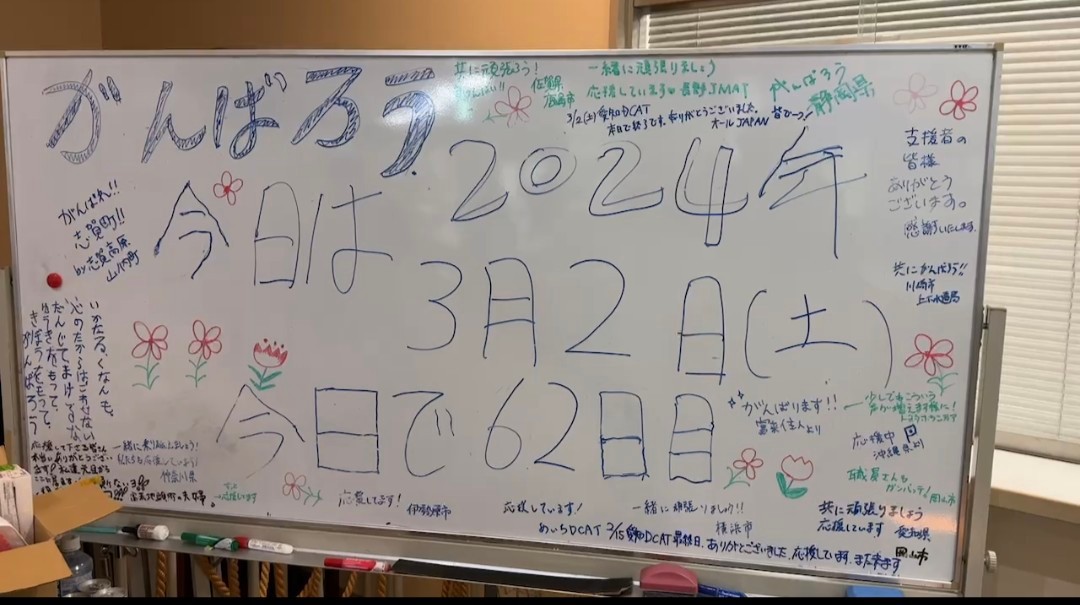 がんばろう
共に頑張ろう！
佐賀県
鹿島市
一緒に頑張りましょう
応援しています 長野JMAT
がんばろう
静岡県
3/2(土)愛知DCAT
本日で終了です。ありがとうございました。
オールJAPAN
2024年
今日は
3月2日(土)
今日で62日目
がんばれ!!
志賀町!!
by志賀高原
山ノ内町
支援者の
皆様
ありがとう
ございます。
感謝いたします。
共にがんばろう!!
川崎市
上下水道局
心のたからはこわせない
きぼうをもって、
がんばろう
応援して下さる皆さん
本当にありがとうござい
ます！
一緒に乗り越えましょう！
神奈川県
応援してます
応援してます！
伊勢原市
応援しています！
一緒に頑張りましょう!!
横浜市
がんばります!!
富来住人より
少しでもこういう
応援中
沖縄県より
職員さんも
ガンバッテ！
岡山市
共に頑張りましょう
応援しています
愛知県
あいちDCAT 2/15 DCAT最終日、ありがとうございました。応援しています。また来ます
岡山市